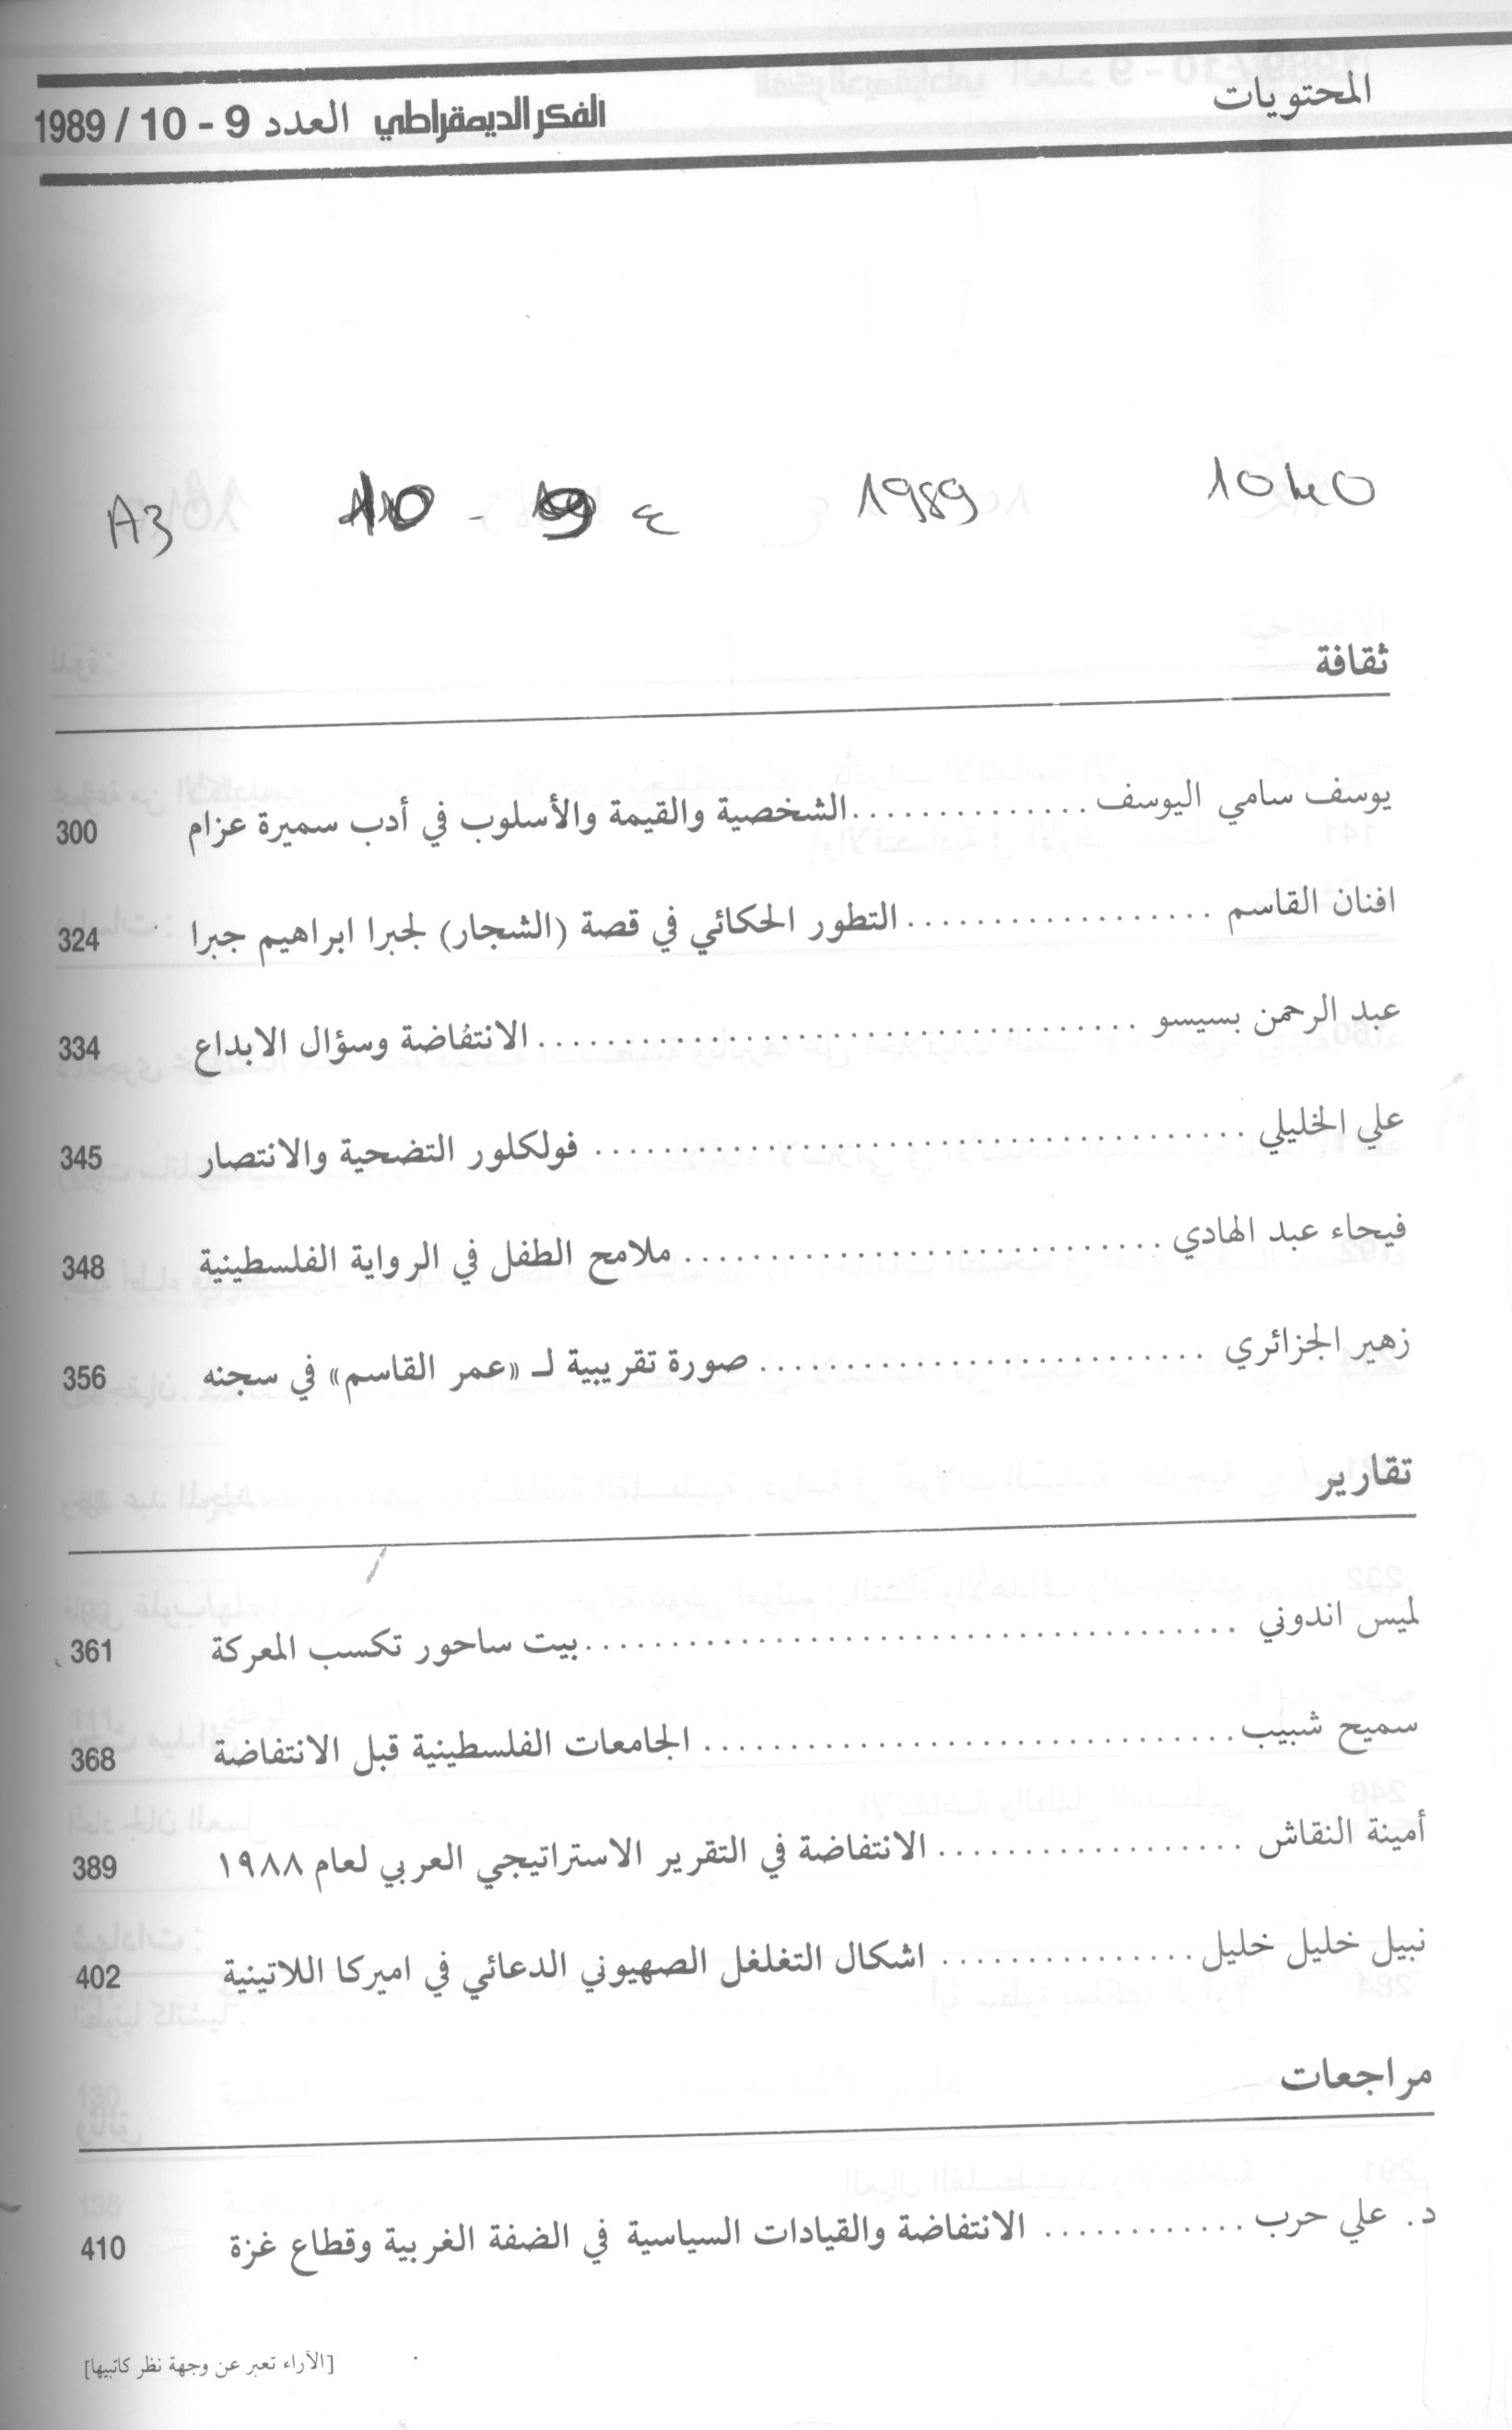 المحتويات
الفكر الديمقراطي العدد 9 - 10 / 1989
1989
A3 10 - 9 ع
ثقافة
يوسف سامي اليوسف ..............الشخصية والقيمة والأسلوب في أدب سميرة عزام 300
افنان القاسم ..................التطور الحكائي في قصة (الشجار) لجبرا ابراهيم جبرا 324
عبد الرحمن بسيسو ...................................الانتفاضة وسؤال الابداع 334
علي الخليلي ...................................... فولكلور التضحية والانتصار 345
فيحاء عبد الهادي ............................ ملامح الطفل في الرواية الفلسطينية 348
زهير الجزائري .......................... صورة تقريبية لـ «عمر القاسم» في سجنه 356
تقارير
لميس اندوني ......................................بيت ساحور تكسب المعركة 361
سميح شبيب............................... الجامعات الفلسطينية قبل الانتفاضة 368
أمينة النقاش .................. الانتفاضة في التقرير الاستراتيجي العربي لعام ١٩٨٨ 389
نبيل خليل خليل............... اشكال التغلغل الصهيوني الدعائي في اميركا اللاتينية 402
مراجعات
د. علي حرب ............ الانتفاضة والقيادات السياسية في الضفة الغربية وقطاع غزة 410
[الآراء تعبر عن وجهة نظر كاتبيها]